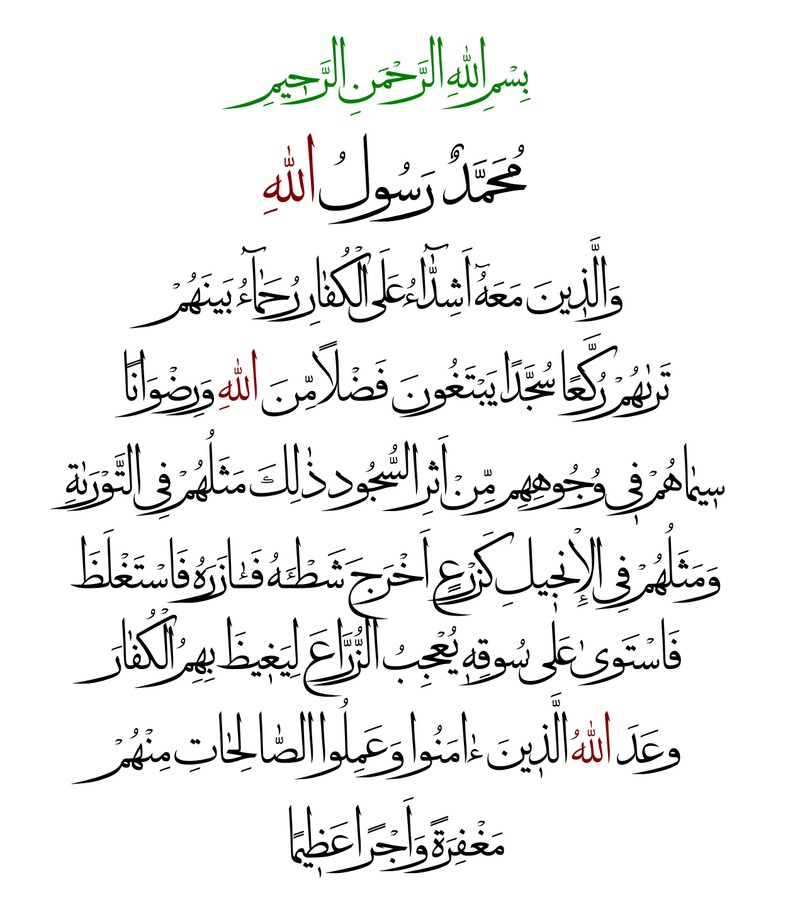 بِسْمِ اللهِ الرَّحْمَنِ الرَّحِيمِ
مُحَمَّدٌ رَسُولُ اللهِ
وَالَّذِينَ مَعَهُٓ أَشِدَّآءُ عَلَى الْكُفَّارِ رُحَمَآءُ بَينَهُمْ
تَرىٰهُمْ رُكَّعًا سُجَّدًا يَبْتَغُونَ فَضْلًا مِّنَ اللهِ وَرِضْوَانًا
سِيمَاهُمْ فِي وُجُوهِهِم مِّنْ أَثَرِ السُّجُودِ ذٰلِكَ مَثَلُهُمْ فِي التَّوْرَىٰةِ
وَمَثَلُهُمْ فِي الْإِنْجِيلِ كَزَرْعٍ أَخْرَجَ شَطْـَٔهُ فَـَٔازَرَهُ فَاسْتَغْلَظَ
فَاسْتَوىٰ عَلَى سُوقِهِ يُعْجِبُ الزُّرَّاعَ لِيَغِيظَ بِهِمُ الْكُفَّارَ
وعَدَ اللهُ الَّذِينَ ءَامَنُوا وَعَمِلُوا الصَّالِحَاتِ مِنْهُمْ
مَغْفِرَةً وَأَجْرًا عَظِيمًا